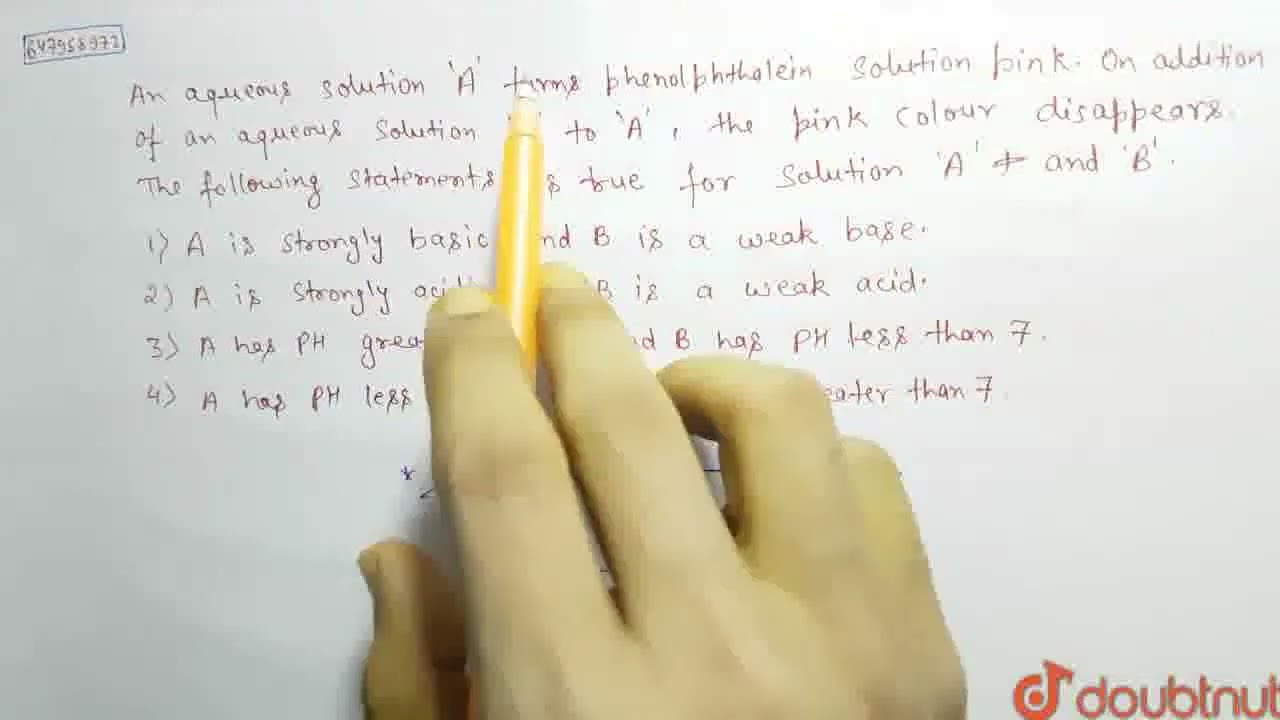 647958972
An aqueous solution 'A' turns phenolphthalein solution pink. On addition
of an aqueous solution to 'A', the pink colour disappears.
The following statements is true for solution 'A' + and 'B'.
1) A is strongly basic and B is a weak base.
2) A is strongly B is a weak acid.
3) A has PH B has PH less than 7.
4) A has PH less than 7.
doubtnut